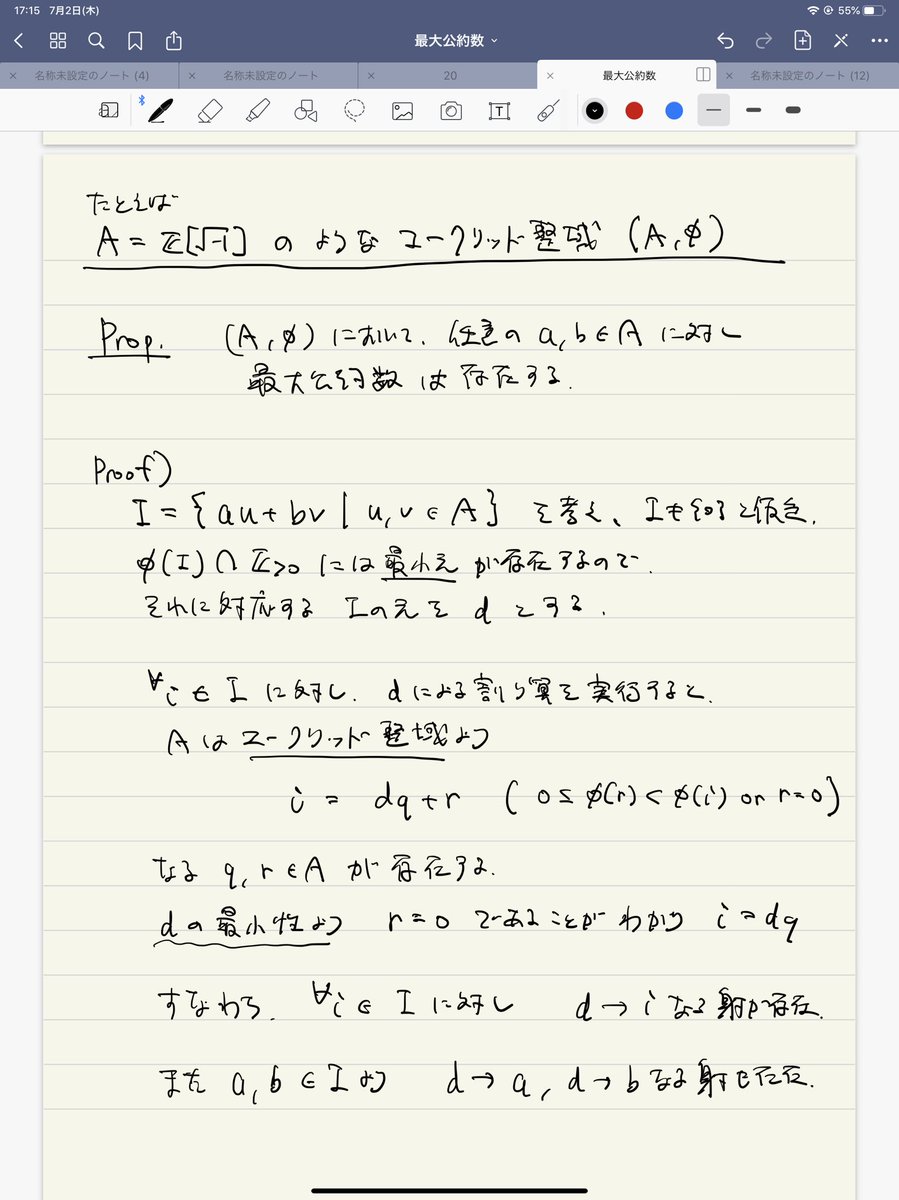 17:15 7月2日(木)
55%
最大公約数
名称未設定のノート (4)
名称未設定のノート
20
最大公約数
名称未設定のノート (12)
たとえば
A = ℤ[√-1] のような ユークリッド整域 (A, φ)
Prop. (A, φ) において、任意の a, b ∈ A に対し
最大公約数 は 存在する.
Proof)
I = { au + bv | u, v ∈ A } を考え、I ≠ {0} と仮定.
φ(I) ∩ ℤ>0 には 最小元 が存在するので、
それに対応する Iの元を d とする.
∀i ∈ I に対し、dによる割り算を実行すると、
A は ユークリッド整域より
i = dq + r ( 0 ≤ φ(r) < φ(i) or r = 0 )
なる q, r ∈ A が存在する.
dの最小性より r = 0 であることがわかり i = dq
すなわち、∀i ∈ I に対し d → i なる射が存在.
また a, b ∈ I より d → a, d → b なる射も存在.